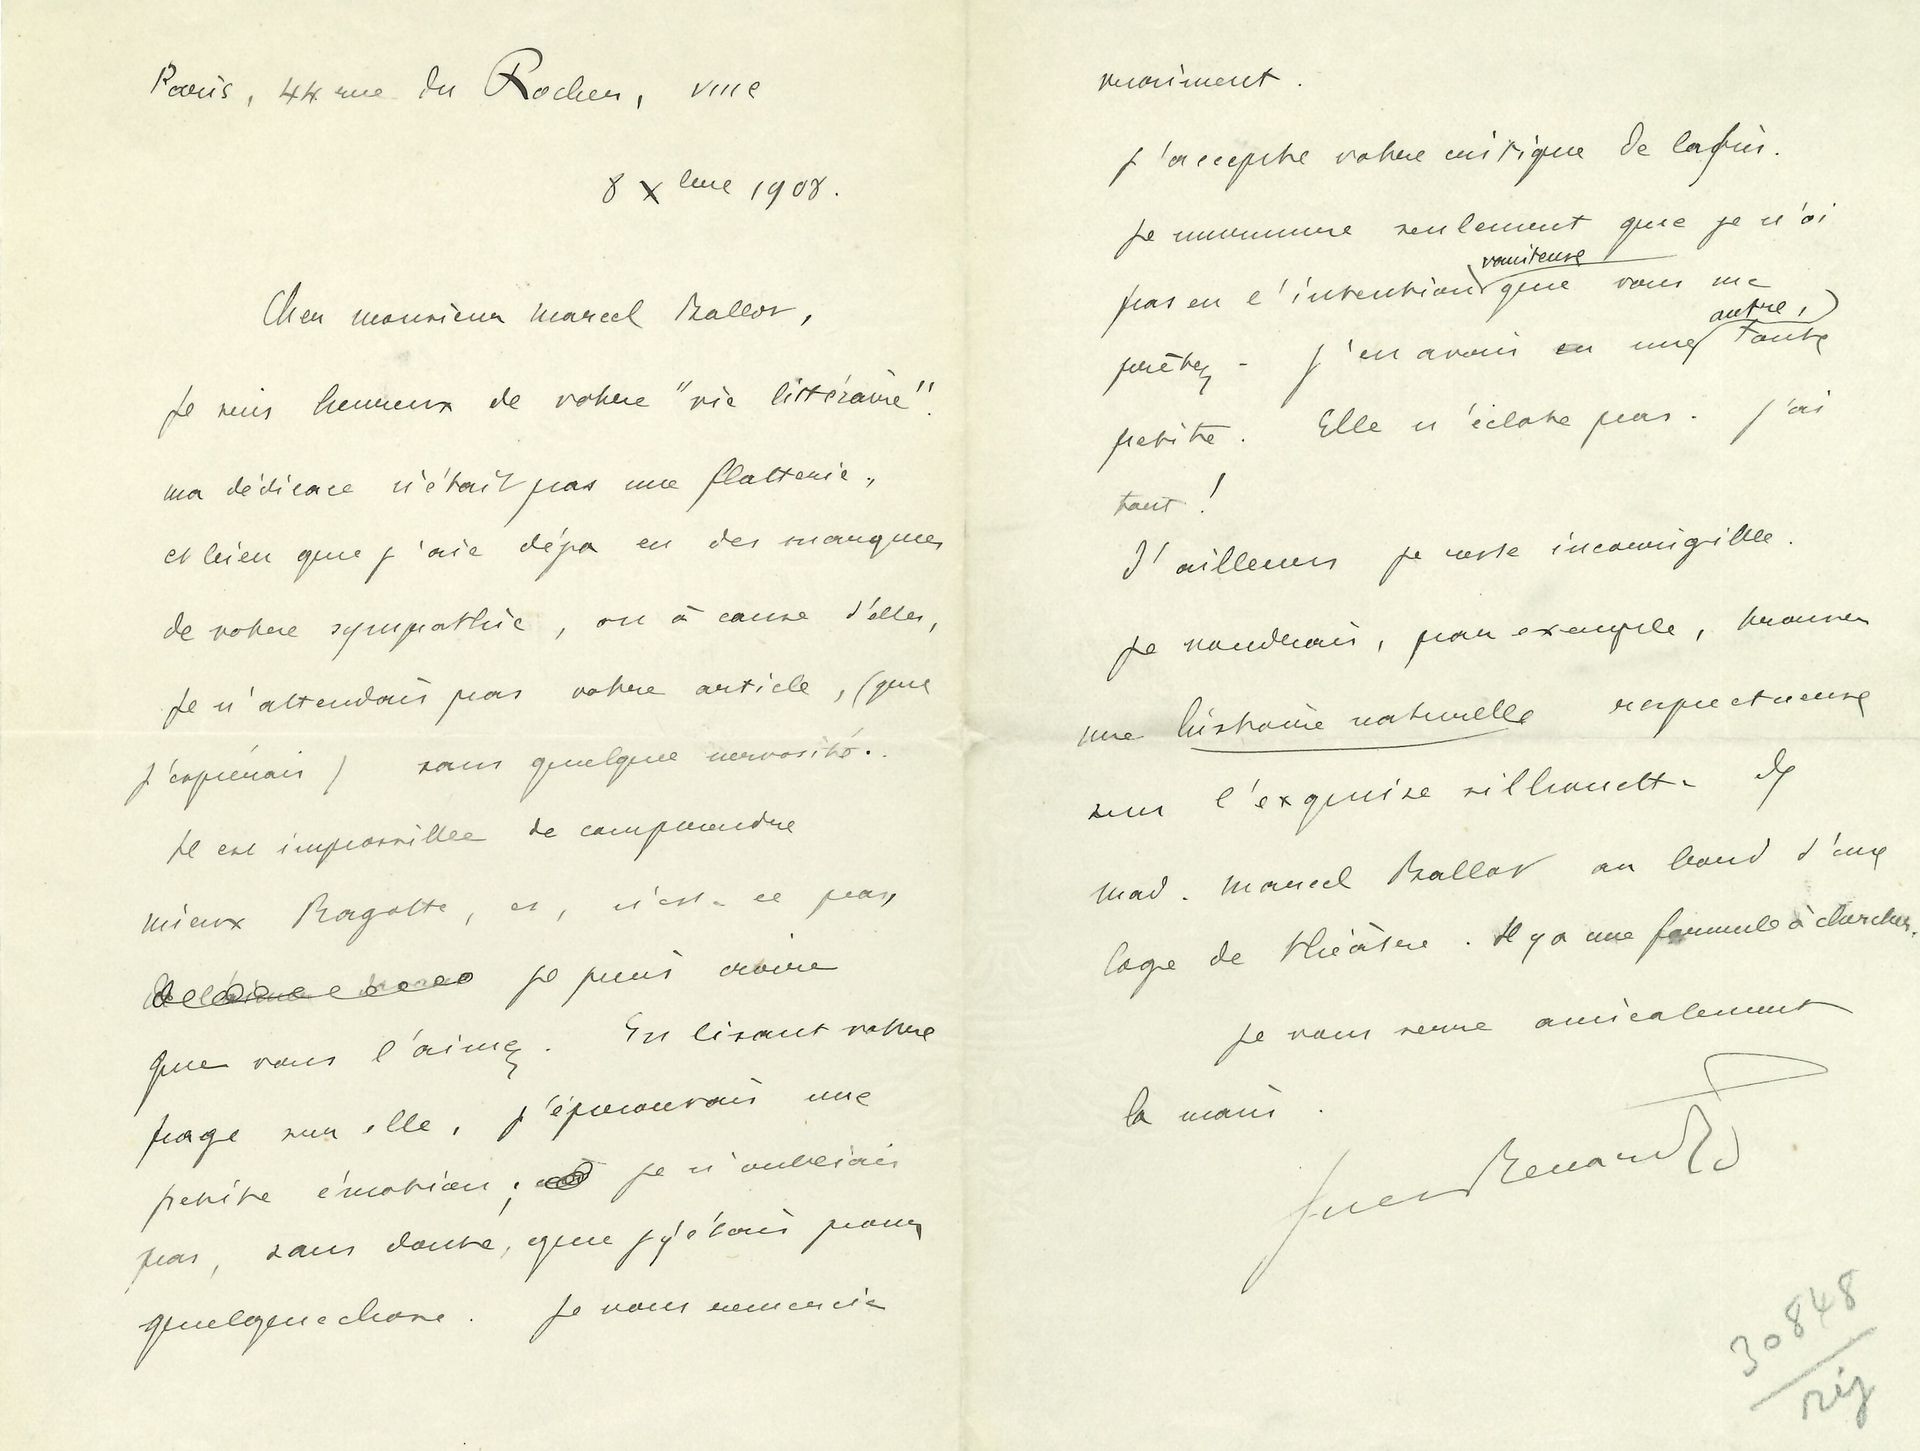 Paris, 44 rue du Rocher, VIIIe
8 Xbre 1908.
Cher monsieur Marcel Ballot,
Je suis heureux de votre "vie littéraire".
ma dédicace n'était pas une flatterie,
et bien que j'aie déjà eu des marques
de votre sympathie, ou à cause d'elles,
je n'attendais pas votre article, (que
j'espérais) sans quelque nervosité.
Il est impossible de comprendre
mieux Ragotte, et, n'est-ce pas,
je puis croire
que vous l'aimez. En lisant votre
page sur elle, j'éprouvais une
petite émotion ; je n'oubliais
pas, sans doute, que j'y étais pour
quelque chose. Je vous remercie
vraiment.
J'accepte votre critique de la fin.
Je murmure seulement que je n'ai
pas eu l'intention vaniteuse que vous me
prêtez - j'en avais eu une autre, toute
petite. Elle n'éclate pas. J'ai
tort !
D'ailleurs je reste incorrigible.
Je voudrais, par exemple, trouver
une histoire naturelle respectueuse
sur l'exquise silhouette de
Mad. Marcel Ballot au bord d'une
loge de théâtre. Il y a une formule à chercher.
Je vous serre amicalement
la main.
Jules Renard
30848